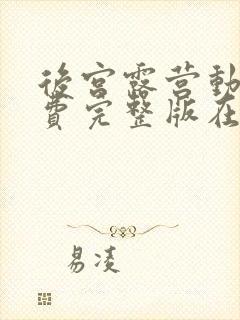 後宮露营動
費完整版在
易凌